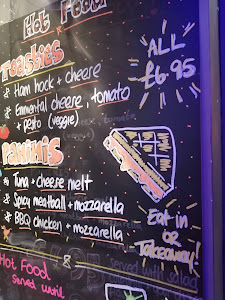 Hot Food
Toasties
ALL
£6.95
Ham hock + cheese
Emmental cheese, tomato
+ Pesto (veggie)
Paninis
Tuna + cheese melt
Spicy meatball + mozzarella
BBQ chicken + mozzarella
Eat in
or
Takeaway!
Hot Food
&
served with salad
Served until